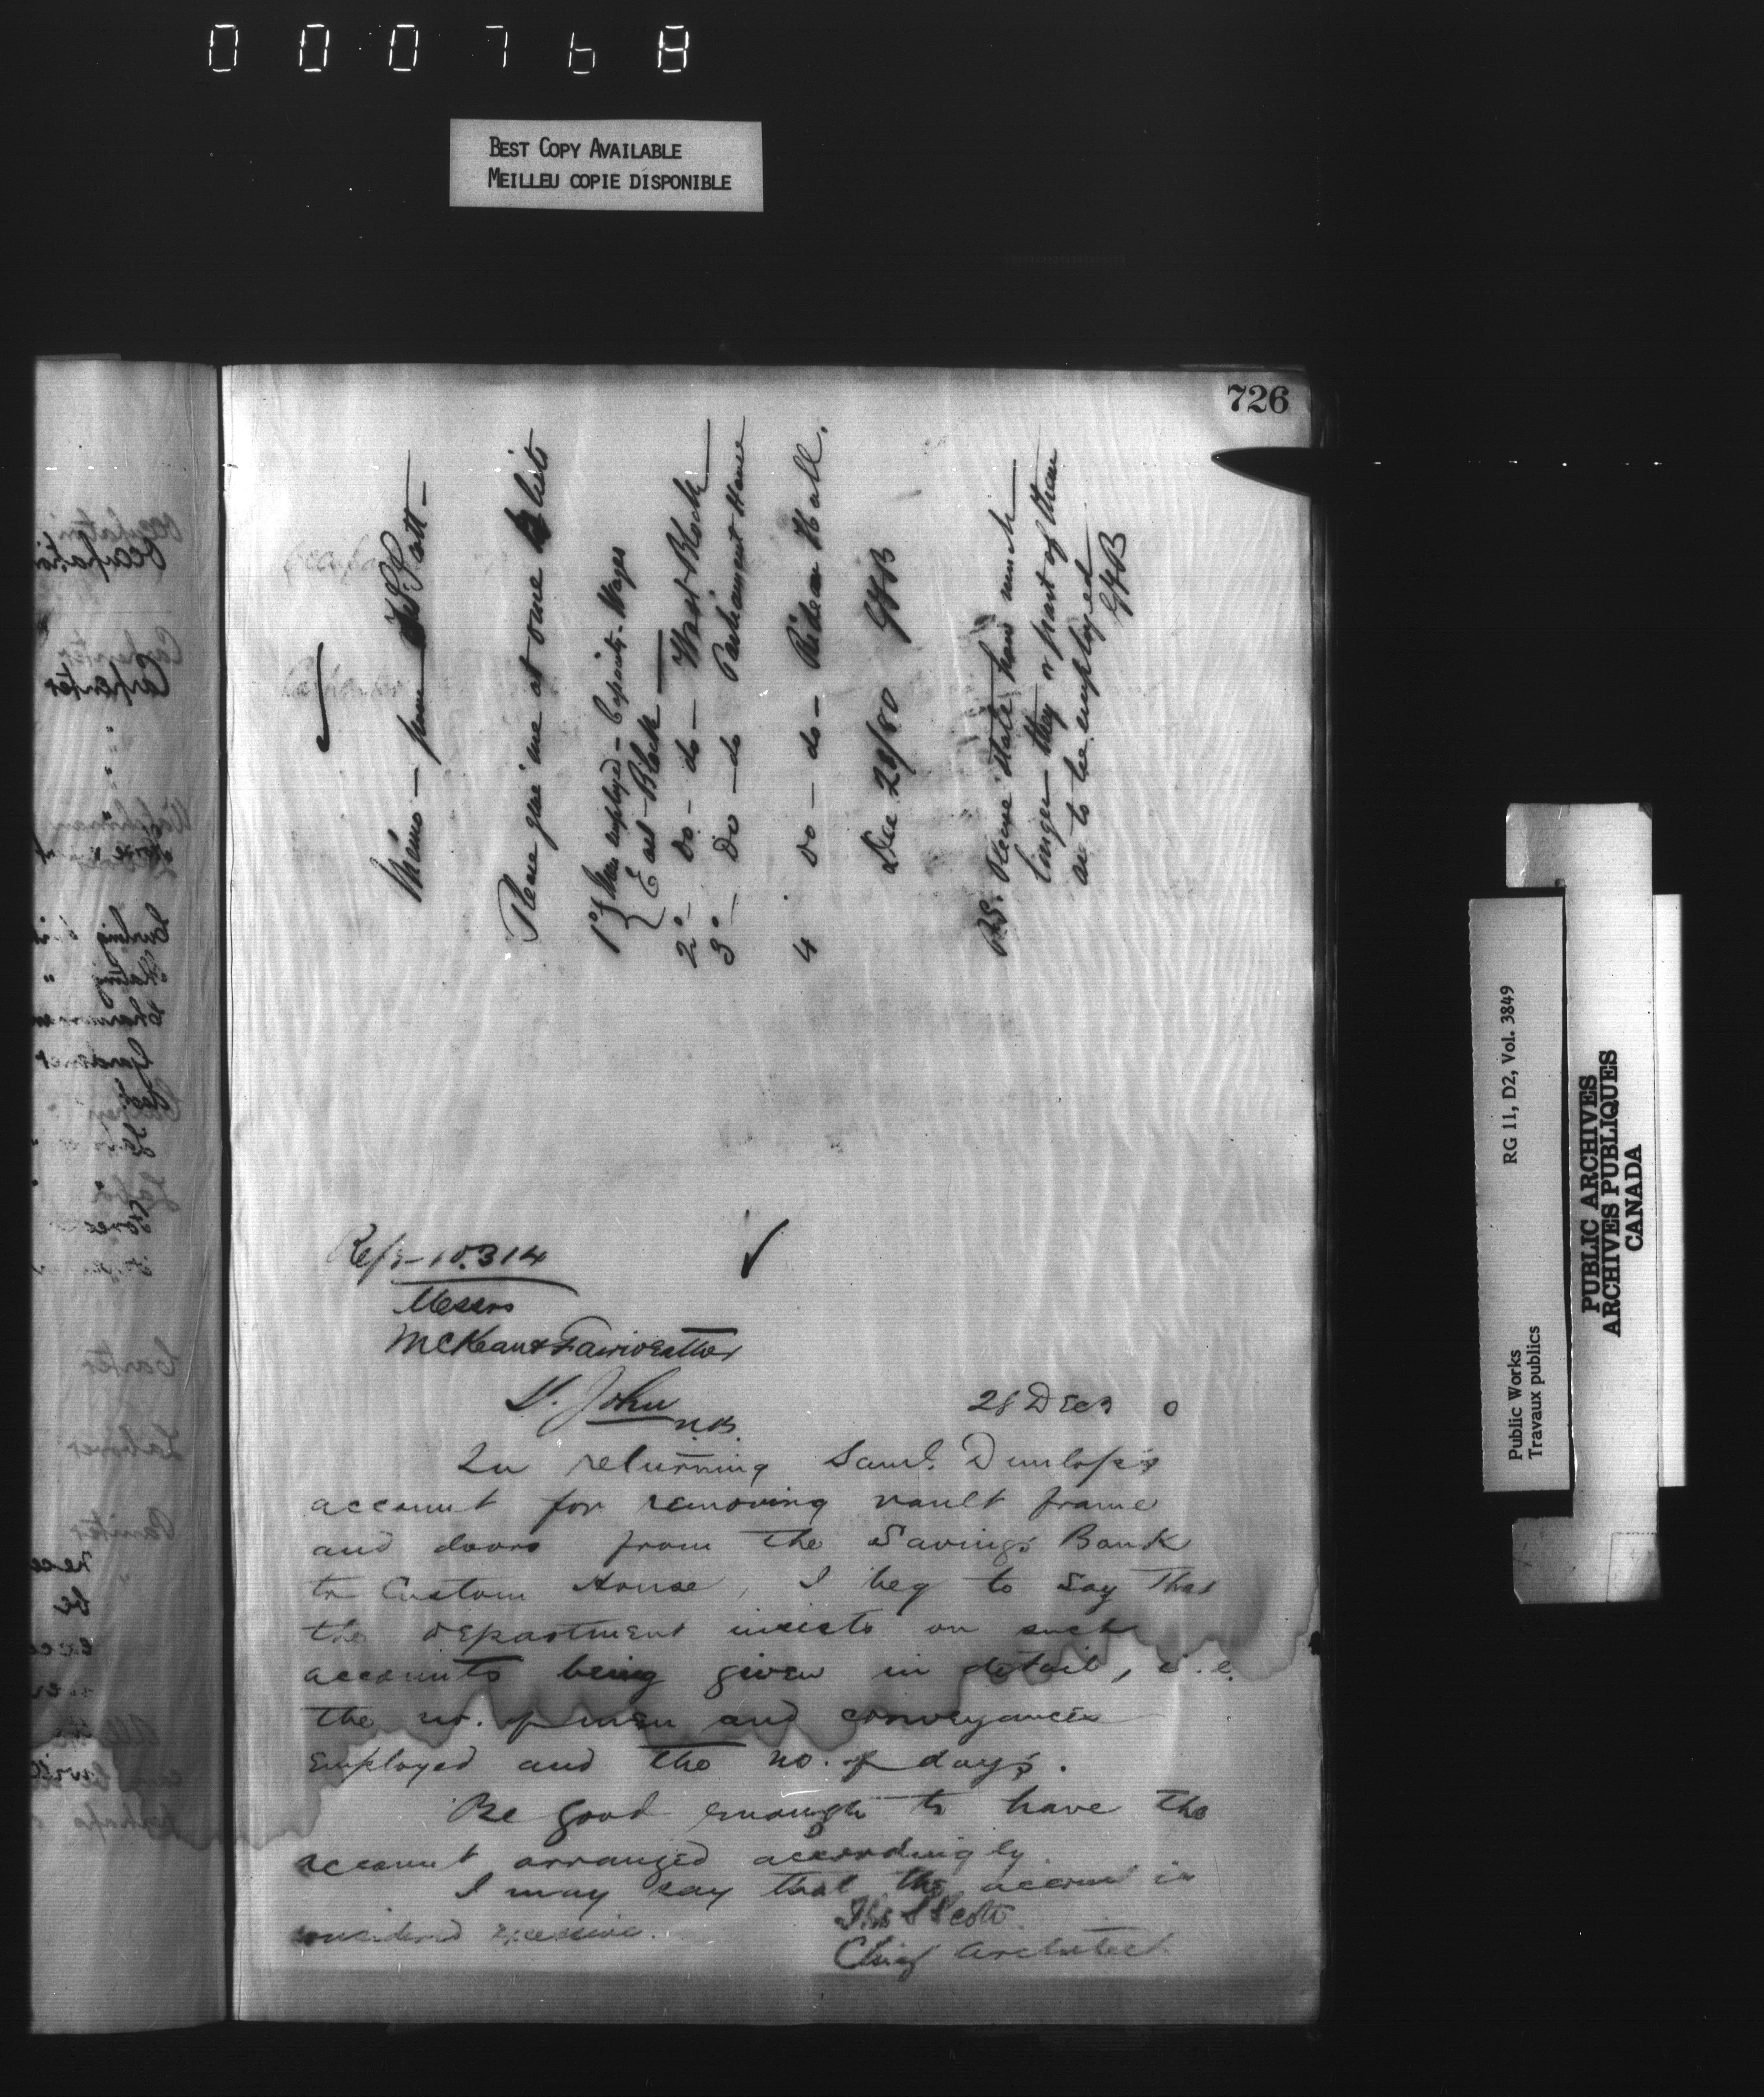 000768
BEST COPY AVAILABLE
MEILLEU COPIE DISPONIBLE
726
Memo — from T.S. Scott —
Please give me at one lists
1° Men employed — Capacity - Wages
East - Block —
2° — Do — do — West Block
3° — Do — do Parliament House
4 Do — do — Rideau Hall.
Dec 28/80 GFB
P.S. Please state how much
longer they or part of them
are to be employed
GFB
Refs - 10.314
Messrs
McKean & Fairweather
St. John
N.B.
28 Decr 0
In returning Saml. Dunlop's
account for removing vault frame
and doors from the Savings Bank
to Custom House, I beg to say that
the department insists on such
accounts being given in detail, i.e.
the no. of men and conveyances
employed and the no. of days.
Be good enough to have the
account arranged accordingly
I may say that the account is
considered excessive.
Thos S Scott
Chief Architect
Occupation
Carpenter
"
"
Curling
Skating "
Gardener
Carter
Laborer
Public Works
Travaux publics
RG 11, D2, Vol. 3849
PUBLIC ARCHIVES
ARCHIVES PUBLIQUES
CANADA